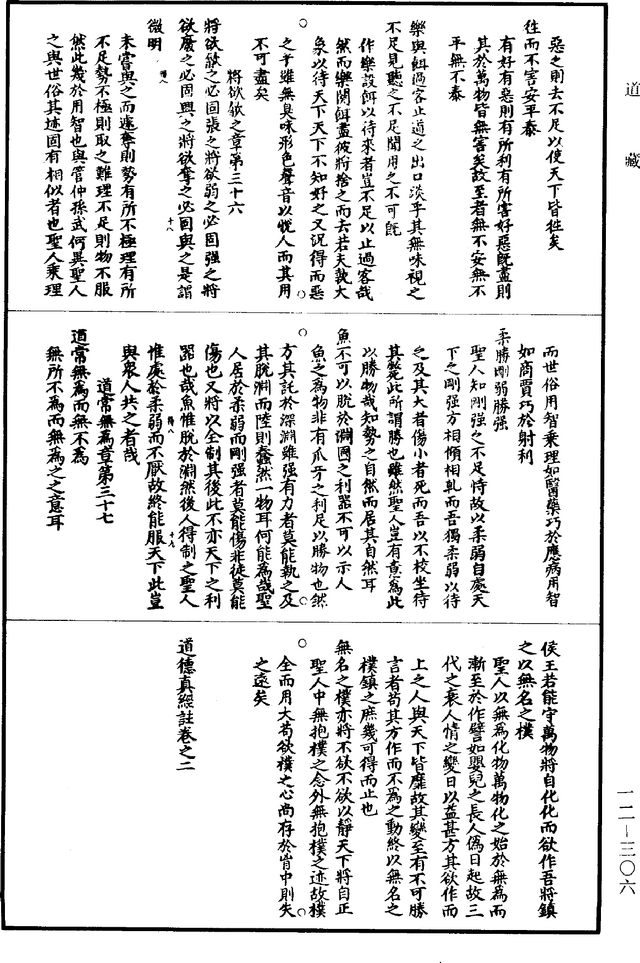 道藏
惡之則去不足以使天下皆往矣
往而不害安平泰
有好有惡則有所利有所害好惡既盡則
其於萬物皆無害矣故至者無不安無不
平無不泰
樂與餌過客止道之出口淡乎其無味視之
不足見聽之不足聞用之不可既
作樂設餌以待來者豈不足以止過客哉
然而樂闋餌盡彼將捨之而去若夫執大
象以待天下天下不知好之又況得而惡
之乎雖無臭味形色聲音以悅人而其用
不可盡矣
將欲歙之章第三十六
將欲歙之必固張之將欲弱之必固强之將
欲廢之必固興之將欲奪之必固與之是謂
微明
未嘗與之而遽奪則勢有所不極理有所
不足勢不極則取之難理不足則物不服
然此幾於用智也與管仲孫武何異聖人
之與世俗其迹固有相似者也聖人乘理
而世俗用智乘理如醫藥巧於應病用智
如商賈巧於射利
柔勝剛弱勝强
聖人知剛强之不足恃故以柔弱自處天
下之剛强方相傾相軋而吾獨柔弱以待
之及其大者傷小者死而吾以不校坐待
其斃此所謂勝也雖然聖人豈有意為此
以勝物哉知勢之自然而居其自然耳
魚不可以脫於淵國之利器不可以示人
魚之為物非有爪牙之利足以勝物也然
方其託於深淵雖强有力者莫能執之及
其脫淵而陸則蠢然一物耳何能為哉聖
人居於柔弱而剛强者莫能傷非徒莫能
傷也又將以全制其後此不亦天下之利
器也哉魚惟脫於淵然後人得制之聖人
惟處於柔弱而不厭故終能服天下此豈
與衆人共之者哉
道常無為章第三十七
道常無為而無不為
無所不為而無為之之意耳
侯王若能守萬物將自化化而欲作吾將鎮
之以無名之樸
聖人以無為化物萬物化之始於無為而
漸至於作譬如嬰兒之長人偽日起故三
代之衰人情之變日以益甚方其欲作而
上之人與天下皆靡故其變至有不可勝
言者苟其方作而不為之動終以無名之
樸鎮之庶幾可得而止也
無名之樸亦將不欲不欲以靜天下將自正
聖人中無抱樸之念外無抱樸之迹故樸
全而用大苟欲樸之心尚存於胷中則失
之遠矣
道德真經註卷之二
一二—三〇六